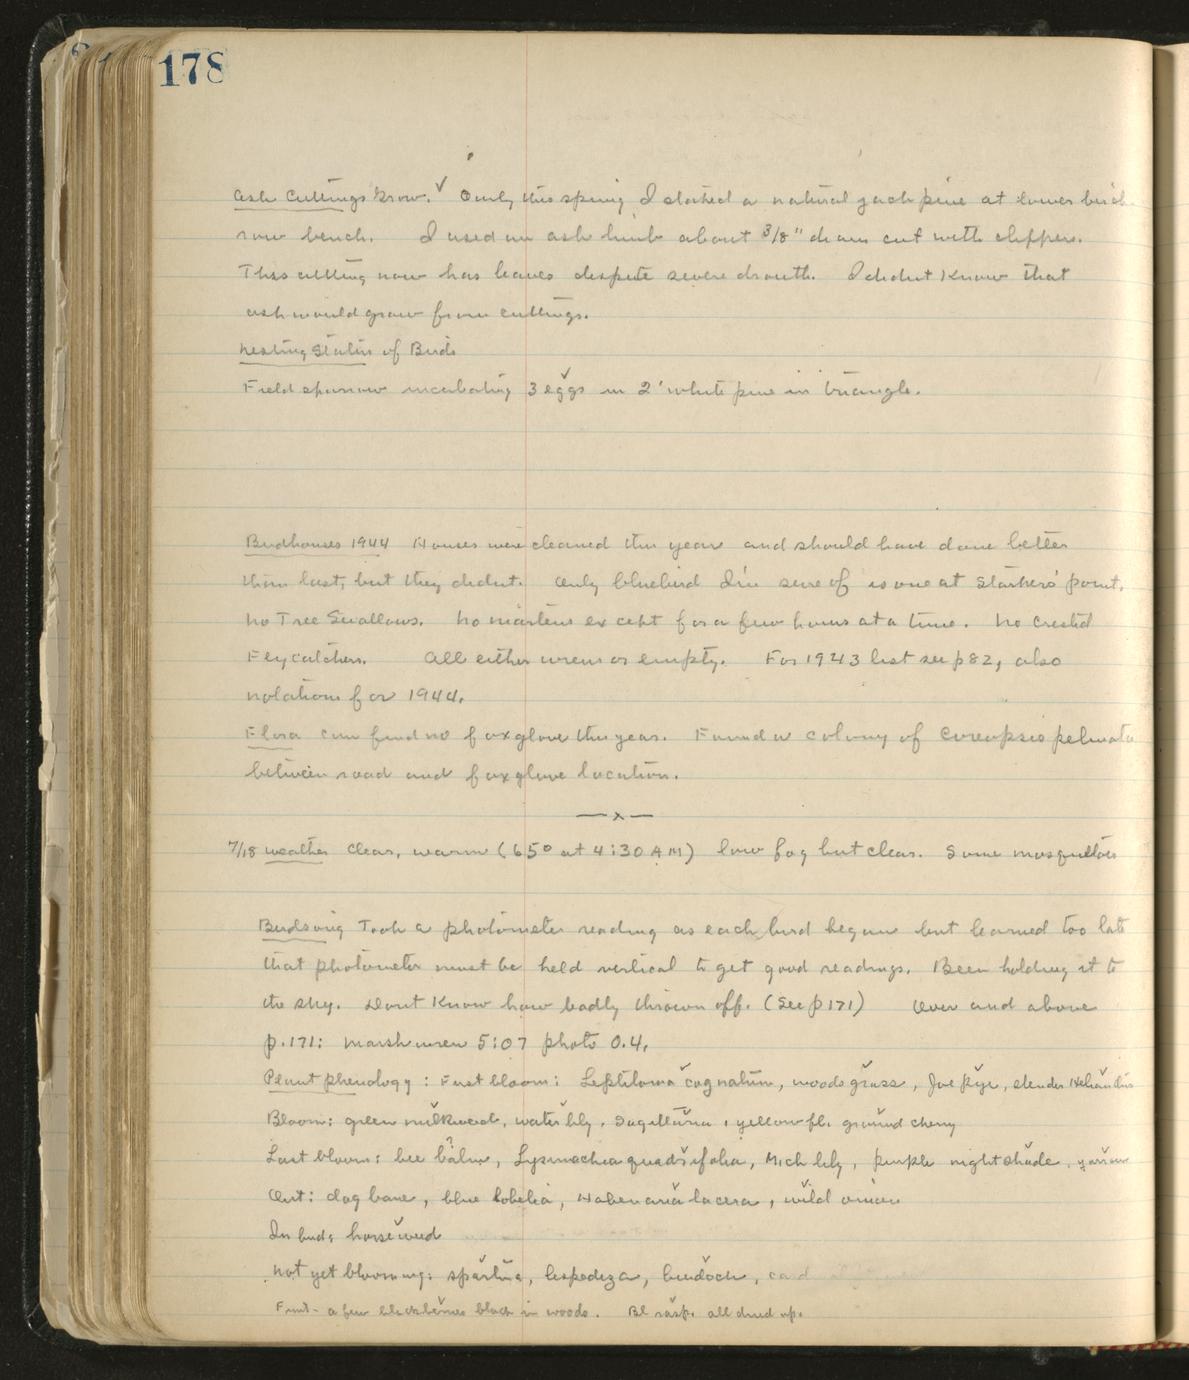 178
Ash cuttings grow. ✓ Early this spring I staked a natural jack pine at lower birch
row bench. I used an ash limb about 3/8" diam cut with clippers.
This cutting now has leaves despite severe drouth. I didnt know that
ash would grow from cuttings.
Nesting Status of Birds
Field sparrow incubating 3 eggs in 2' white pine in "triangle.
Birdhouses 1944 Houses were cleaned this year and should have done better
than last, but they didnt. Only bluebird I'm sure of is one at Starkers' point.
No Tree Swallows. No martens except for a few hours at a time. No crested
Flycatchers. All either wrens or empty. For 1943 list see p 82, also
notations for 1944.
Flora Can find no foxglove this year. Found a colony of Coreopsis palmata
between road and foxglove location.
—x—
7/18 Weather Clear, warm (65° at 4:30 AM) low fog but clear. Some mosquitoes
Birdsong Took a photometer reading as each bird began but learned too late
that photometer must be held vertical to get good readings. Been holding it to
the sky. Dont know how badly thrown off. (See p 171) Over and above
p. 171: Marsh wren 5:07 photo 0.4.
Plant phenology: First bloom: Leptiloma cognatum, woodsgrass, Joe Pye, slender Helianthus
Bloom: green milkweed, water lily, Sagittaria, yellow fl. ground cherry
Last bloom: bee balm, Lysmachia quadrifolia, Mich lily, purple nightshade, yarrow
Out: dogbane, blue lobelia, Habenaria lacera, wild onion
In bud: horseweed
Not yet blooming: spartina, lespedeza, burdock,
Fruit - a few blackberries black in woods. Bl rasp. all dried up.